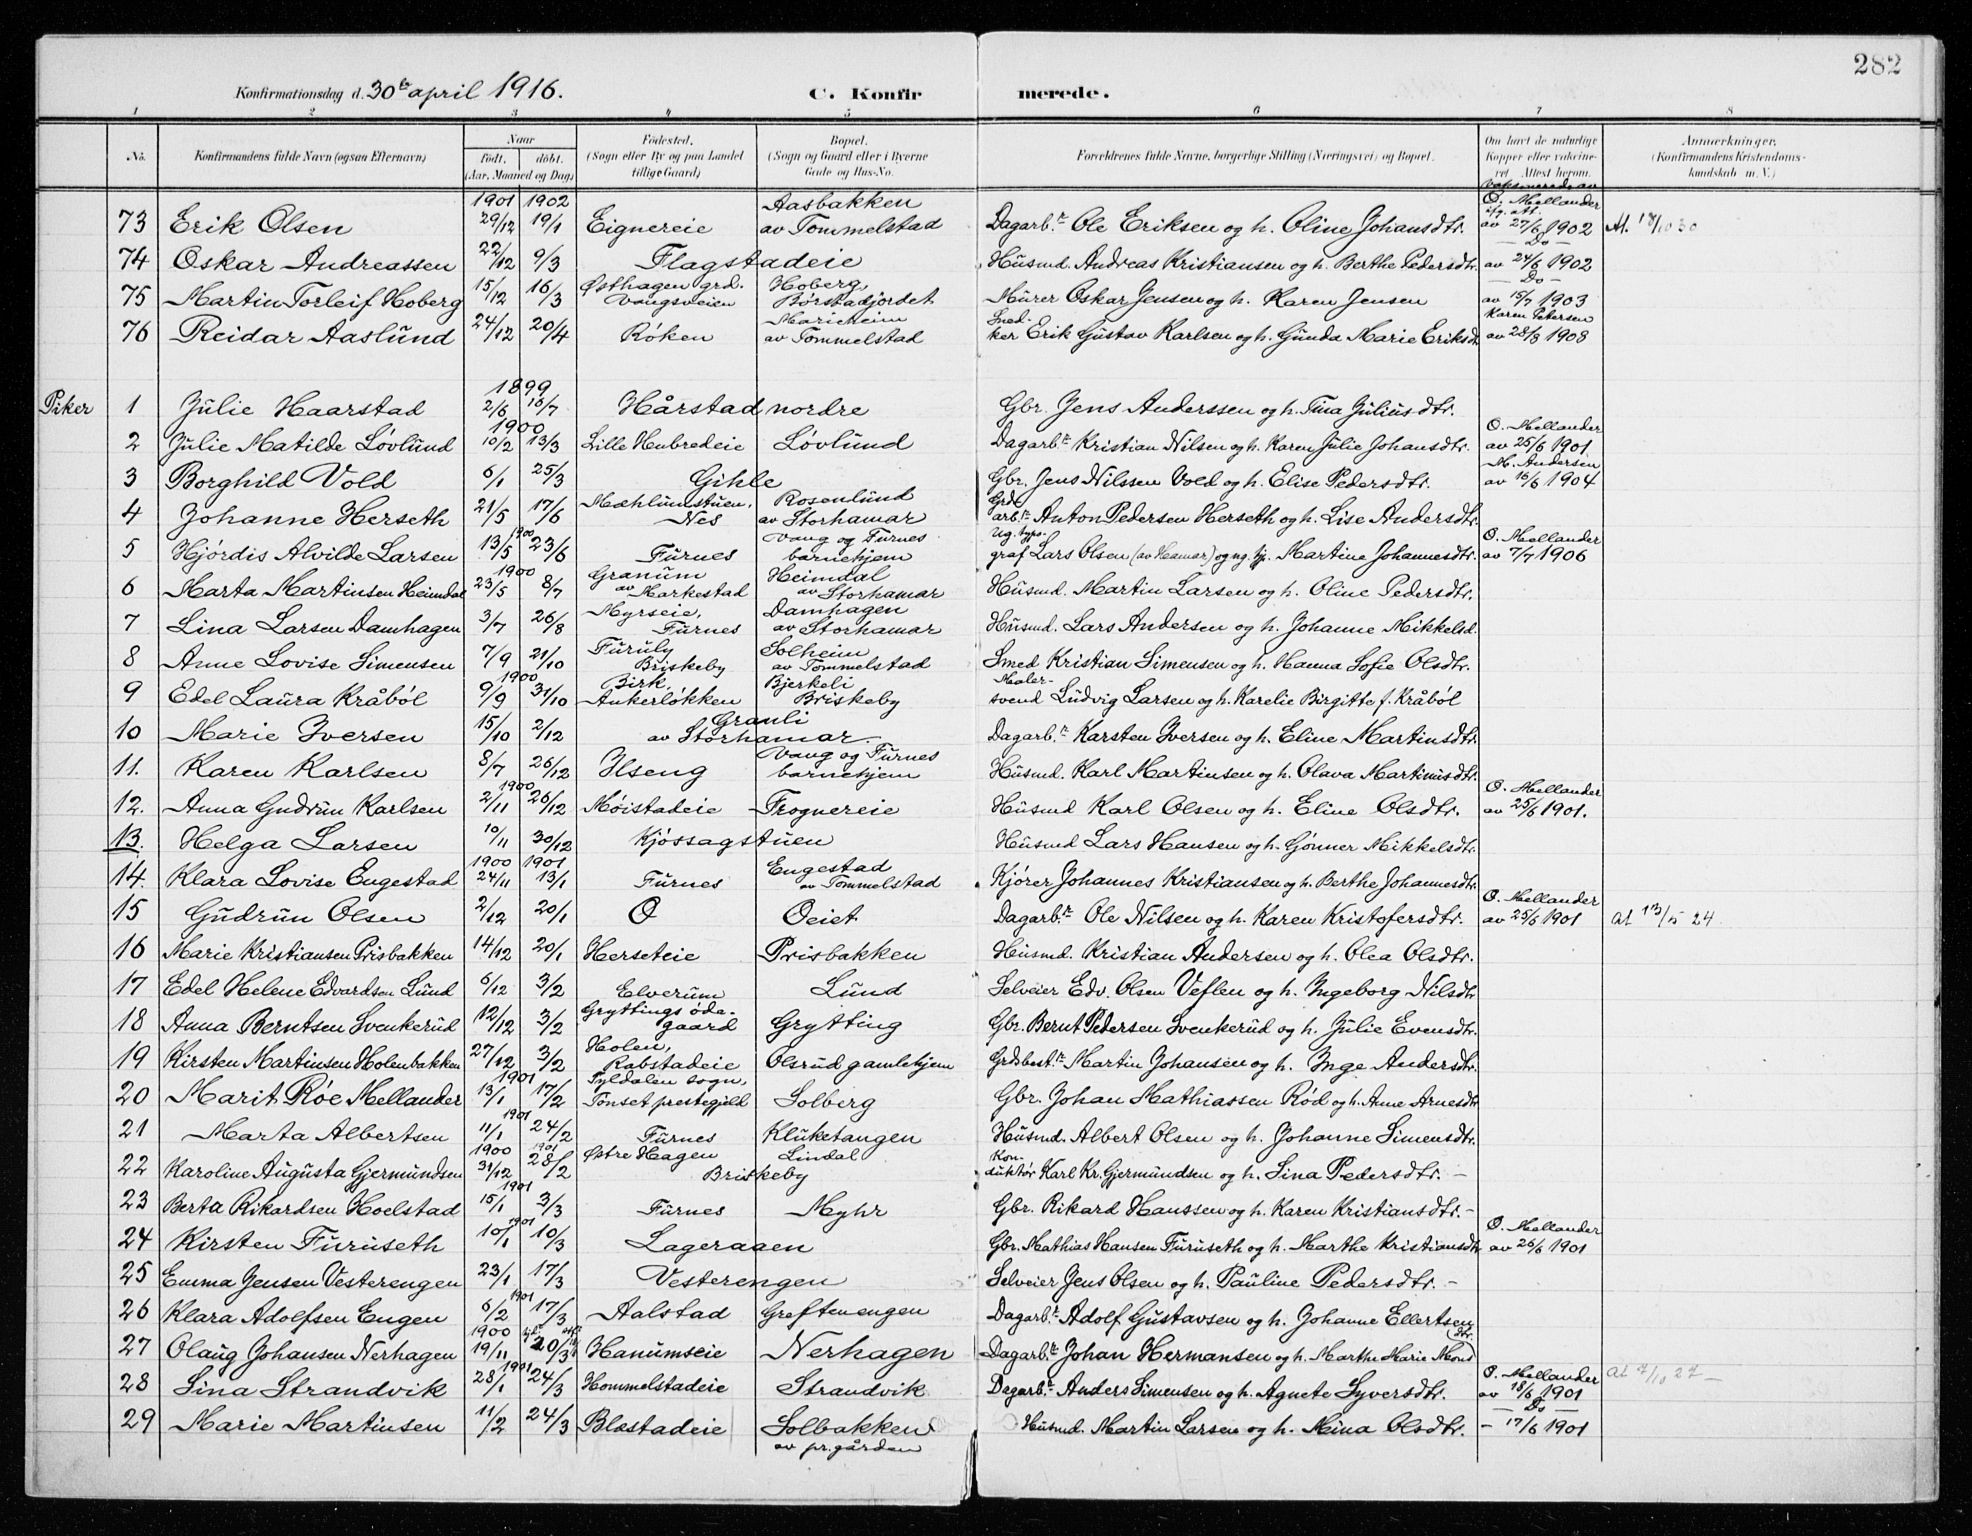 282
Konfirmationsdag d. 30te april 1916. C. Konfirmerede.
1 2 3 4 5 6 7 8
No. Konfirmandens fulde Navn (ogsaa Efternavn) Naar født, døbt. (Aar, Maaned og Dag) Fødested. (Sogn eller By og paa Landet tillige Gaard) Bopæl. (Sogn og Gaard eller i Byerne Gade og Hus-No. Forældrenes fulde Navne, borgerlige Stilling (Næringsvei) og Bopæl. Om havt de naturlige Kopper eller vaksineret. Attest herom. Anmærkninger, (Konfirmandens Kristendomskundskab m. V.)
1901 1902 Aasbakken O. Mellander
73 Erik Olsen 29/12 19/1 Eignereie av Tommelstad Dagarb.r Ole Eriksen og h. Oline Johansdtr. av 27/6 1902
74 Oskar Andreassen 22/12 9/3 Flagstadeie Husmd. Andreas Kristiansen og h. Berthe Pedersdtr. — Do — av 24/6 1902
75 Martin Torleif Hoberg 15/12 16/3 Østhagen grd. Vangsveien Hoberg, Børstadjordet Murer Oskar Jensen og h. Karen Jensen — Do — av 15/7 1903
76 Reidar Aaslund 24/12 20/4 Røken Marieheim av Tommelstad Snedker Erik Gustav Karlsen og h. Gunda Marie Eriksdt. Karen Petersen av 28/8 1908
Piker 1899
1 Julie Haarstad 2/6 16/7 Hårstad nordre Gbr. Jens Anderssen og h. Tina Juliusdtr.
1900
2 Julie Matilde Løvlund 10/2 13/3 Lille Hubredeie Løvlund Dagarb.r Kristian Nilsen og h. Karen Julie Johansdtr. O. Mellander av 25/6 1901
3 Borghild Vold 6/1 25/3 Gihle Gbr. Jens Nilssen Vold og h. Elise Pedersdtr. M. Andersen av 16/6 1904
4 Johanne Herseth 21/5 17/6 Mæhlumstuen, Nes Rosenlund av Storhamar Grdarb.r Anton Pedersen Herseth og h. Lise Andersdtr.
5 Hjørdis Alvilde Larsen 13/5 1900 23/6 Furnes Vang og Furnes barnehjem Ug. typograf Lars Olsen (av Hamar) og ug. tj. Martine Johannesdtr. O. Mellander av 7/7 1906
1900
6 Marta Martinsen Heimdal 23/5 8/7 Granum av Markestad Heimdal av Storhamar Husmd. Martin Larsen og h. Oline Pedersdtr.
7 Lina Larsen Damhagen 3/7 26/8 Myrseie, Furnes Damhagen av Storhamar Husmd. Lars Andersen og h. Johanne Mikkelsd.
8 Anne Lovise Simensen 7/9 21/10 Furuly Briskeby Solheim av Tommelstad Smed Kristian Simensen og h. Hanna Sofie Olsdtr.
1900
9 Edel Laura Kråbøl 9/9 31/10 Birk, Ankerløkken Bjerkeli Briskeby Malersvend Ludvig Larsen og h. Karelie Birgitte f. Kråbøl
10 Marie Iversen 15/10 2/12 Granli av Storhamar Dagarb.r Karsten Iversen og h. Eline Martinsdtr.
11. Karen Karlsen 8/7 26/12 Ilseng Vang og Furnes barnehjem Husmd. Karl Martinsen og h. Olava Martinusdtr.
1900
12. Anna Gudrun Karlsen 2/11 26/12 Møistadeie Frognereie Husmd Karl Olsen og h. Eline Olsdtr. O. Mellander av 25/6 1901.
13. Helga Larsen 10/11 30/12 Kjøssagstuen Husmd Lars Hansen og h. Gønner Mikkelsdtr.
1900 1901
14. Klara Lovise Engestad 24/11 13/1 Furnes Engestad av Tommelstad Kjører Johannes Kristiansen og h. Berthe Johannesdtr.
15 Gudrun Olsen 2/12 20/1 O Oeiet Dagarb.r Ole Nilsen og h. Karen Kristofersdtr. O. Mellander av 25/6 1901 At 13/5 24
16 Marie Kristiansen Prisbakken 14/12 20/1 Herseteie Prisbakken Husmd. Kristian Andersen og h. Olea Olsdtr.
17 Edel Helene Edvardsen Lund 6/12 3/2 Elverum Lund Selveier Edv. Olsen Veflen og h. Ingeborg Nilsdtr
18 Anna Berntsen Svenkerud 12/12 3/2 Gryttings ødegaard Grytting Gbr. Bernt Pedersen Svenkerud og h. Julie Evensdtr.
19 Kirsten Martinsen Holenbakken 27/12 3/2 Holen, Rabstadeie Olsrud gamlehjem Grdsbest.r Martin Johansen og h. Inge Andersdtr.
1901
20 Marit Røe Mellander 13/1 17/2 Tyldalen sogn, Tønset prestegjeld Solberg Gbr. Johan Mathiassen Rød og h. Anne Arnesdtr
1901
21 Marta Albertsen 11/1 24/2 Furnes Kluketangen Husmd. Albert Olsen og h. Johanne Simensdtr.
1900 1901
22 Karoline Augusta Gjermundsen 31/12 28/2 Østre Hagen Lindal Briskeby Konduktør Karl Kr. Gjermundsen og h. Lina Pedersdtr. —
1901
23 Berta Rikardsen Hoelstad 15/1 3/3 Furnes Myhr Gbr. Rikard Hanssen og h. Karen Kristiansdtr. —
1901
24 Kirsten Furuseth 10/1 10/3 Lageraaen Gbr. Mathias Hansen Furuseth og h. Marthe Kristiansdtr O. Mellander av 26/6 1901
25 Emma Jensen Vesterengen 23/1 17/3 Vesterengen Selveier Jens Olsen og h. Pauline Pedersdtr. —
1901
26 Klara Adolfsen Engen 6/2 17/3 Aalstad Greftenengen Dagarb.r Adolf Gustavsen og h. Johanne Ellertsendtr.
1900
27 Olaug Johansen Nerhagen 19/11 20/3 Hanumseie Nerhagen Dagarb.r Johan Hermansen og h. Marthe Marie Mons
1901
28 Lina Strandvik 28/1 24/3 Hommelstadeie Strandvik Dagarb.r Anders Simensen og h. Agnete Syversdtr. O. Mellander av 18/6 1901 At 7/10 27 —
29 Marie Martinsen 11/2 24/3 Blæstadeie Solbakken av pr.gården Husmd. Martin Larsen og h. Mina Olsdtr. — Do — — 17/6 1901